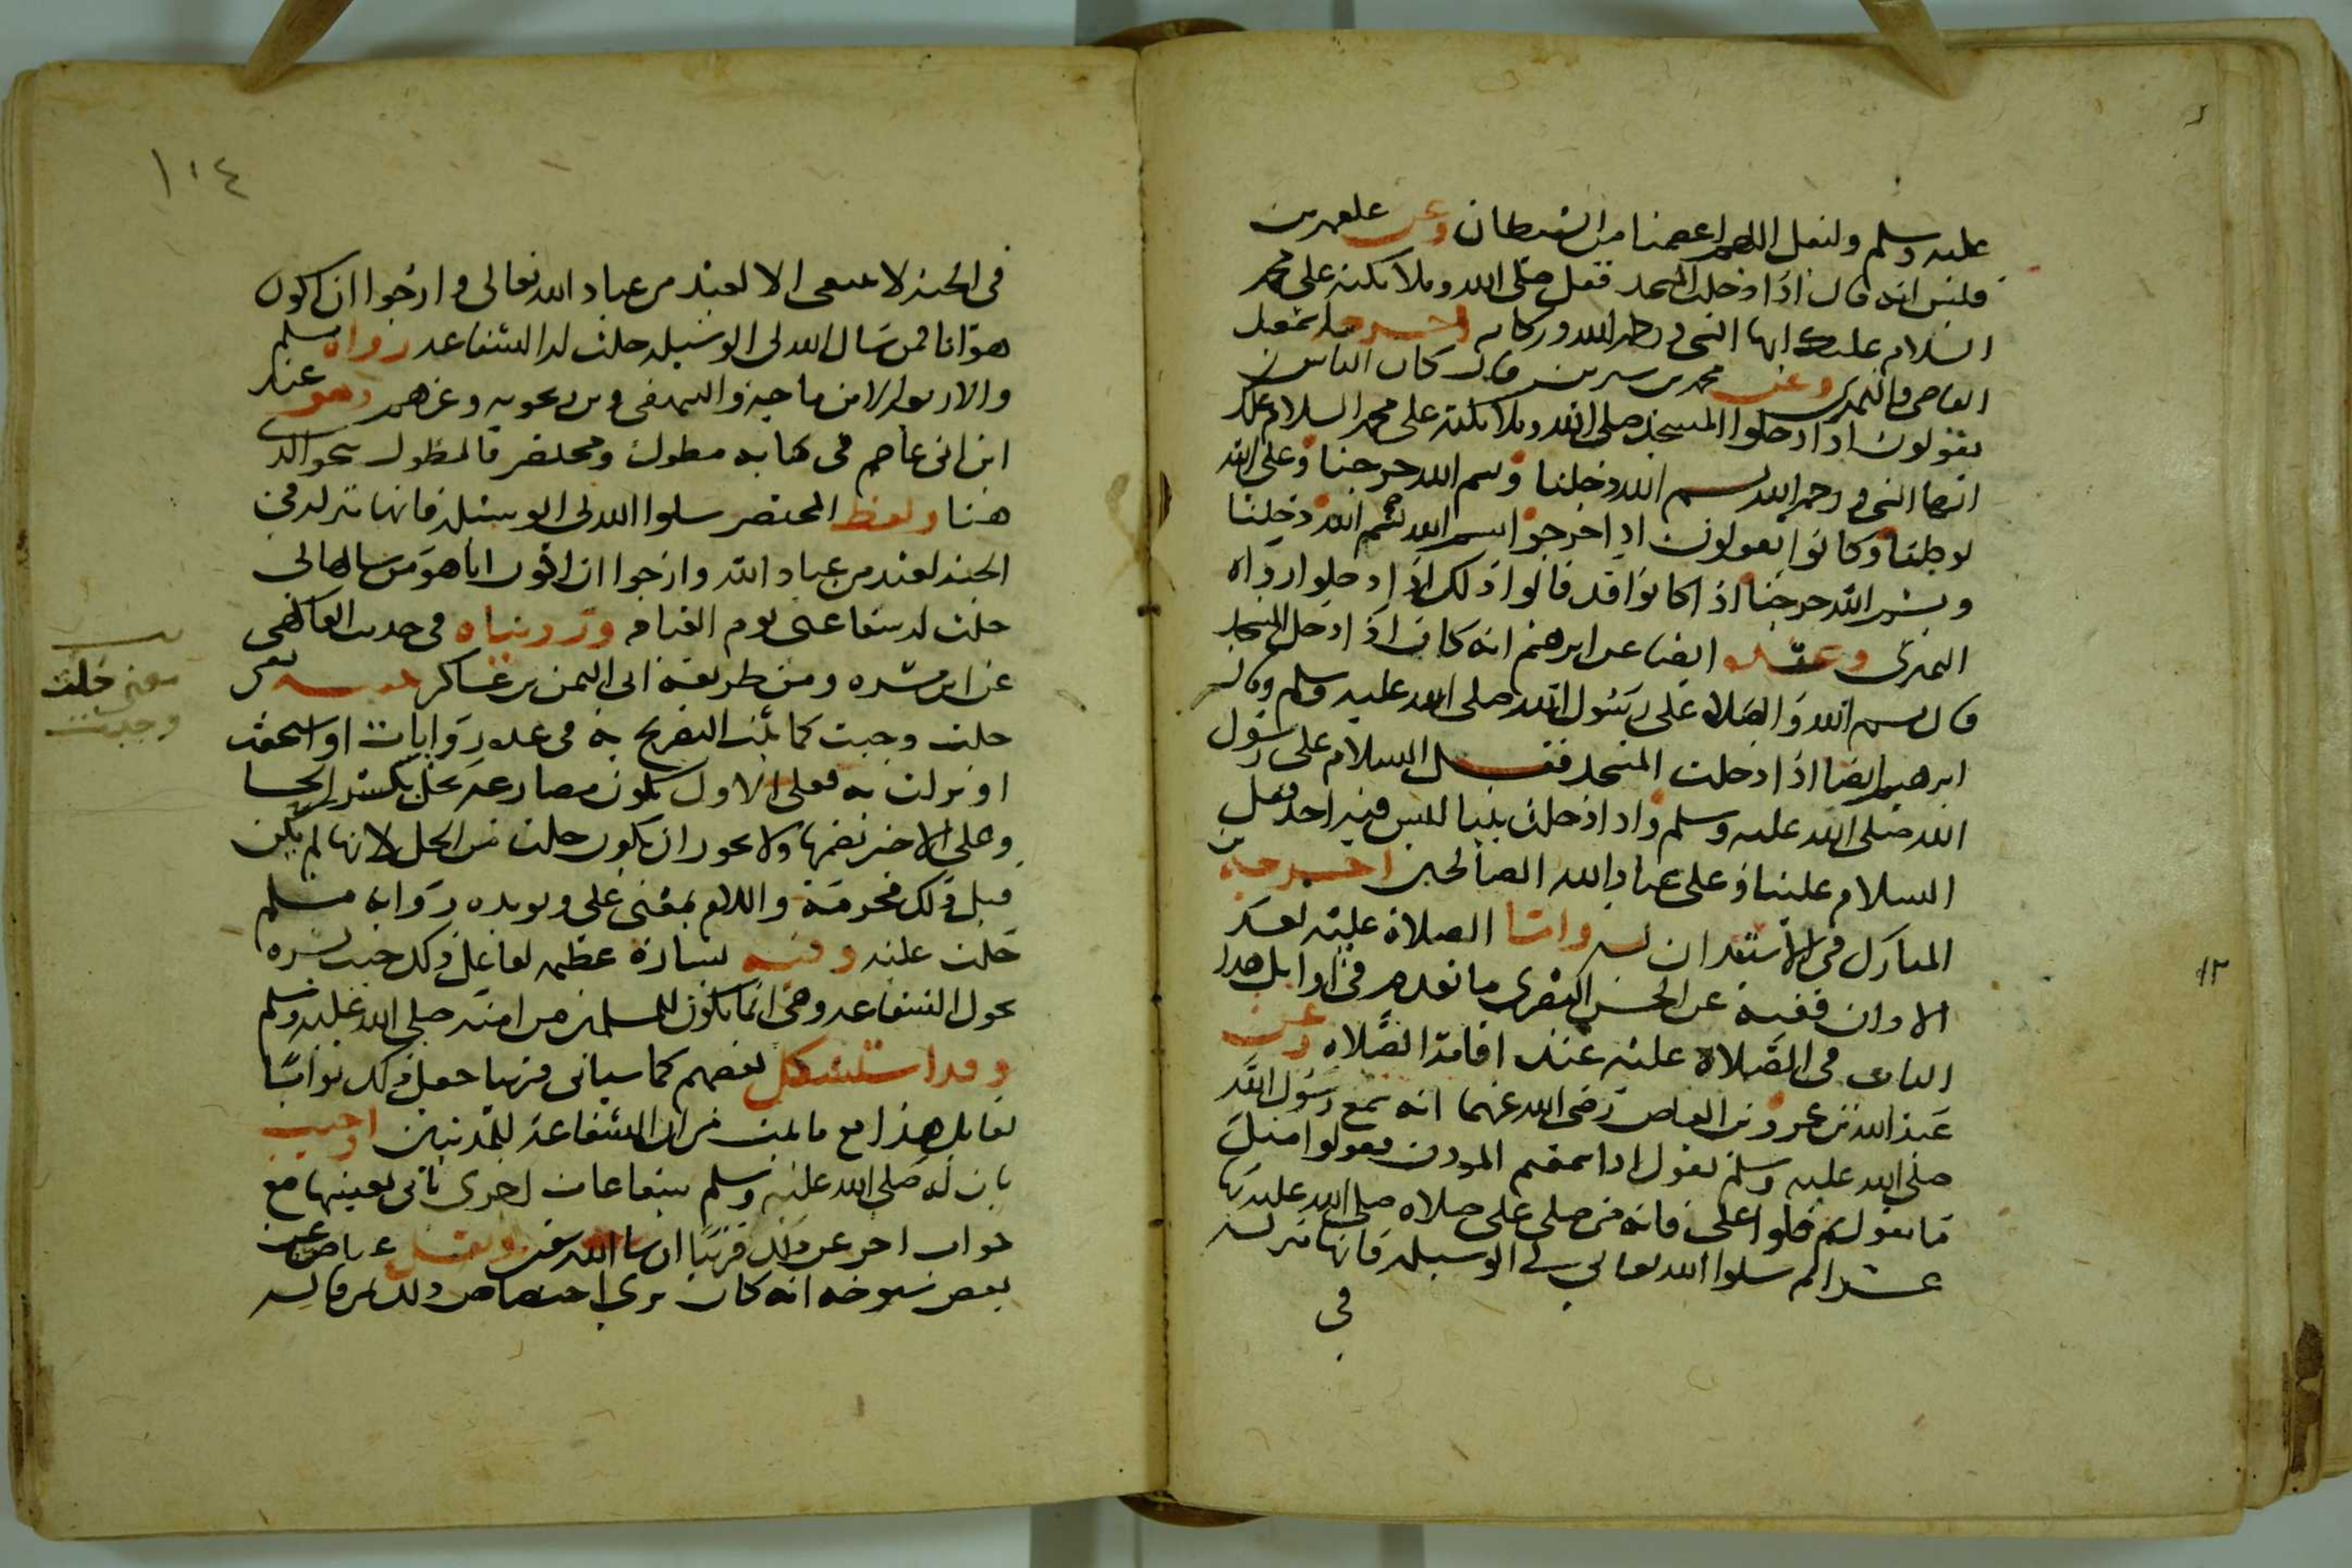 عليه وسلم وليقل اللهم اعصمنا من الشيطان وعن علقمه بن
قيس انه قال اذا دخلت المسجد فقل صلى الله وملائكته على محمد
السلام عليك ايها النبي ورحمة الله وبركاته اخرجه اسمعيل
القاضي والنميري وعن محمد بن سيرين قال كان الناس
يقولون اذا دخلوا المسجد صلى الله وملائكته على محمد السلام عليك
ايها النبي ورحمة الله بسم الله دخلنا وبسم الله خرجنا وعلى الله
توكلنا وكانوا يقولون اذا خرجوا بسم الله بسم الله دخلنا
وبسم الله خرجنا اذا كانوا قد قالوا ذلك اذا دخلوا رواه
النميري وعنده ايضا عن ابرهيم انه كان اذا دخل المسجد
قال بسم الله والصلاة على رسول الله صلى الله عليه وسلم وقال
ابرهيم ايضا اذا دخلت المسجد فقل السلام على رسول
الله صلى الله عليه وسلم واذا دخلت بيتا ليس فيه احد فقل
السلام علينا وعلى عباد الله الصالحين اخرجه بن
المبارك في الاستئذان له واما الصلاة عليه بعد
الاذان ففيه عن الحسن البصري ما تقدم في اوايل هذا
الباب في الصلاة عليه عند اقامة الصلاه وعن
عبد الله بن عمرو بن العاص رضى الله عنهما انه سمع رسول الله
صلى الله عليه وسلم يقول اذا سمعتم الموذن فقولوا مثل
ما يقول ثم صلوا على فانه من صلى على صلاه صلى الله عليه بها
عشرا ثم سلوا الله تعالى لي الوسيله فانها منزله
في
١٢
١٠٤
في الجنه لا تنبغى الا لعبد من عباد الله تعالى وارجوا ان اكون
هو انا فمن سال الله لى الوسيله حلت له الشفاعه رواه مسلم
والاربعه الا ابن ماجه والبيهقى وبن زنجويه وغيرهم وهو عند
ابن ابى عاصم في كتابه مطول ومختصر فالمطول نحو الذي
هنا ولفظ المختصر سلوا الله لى الوسيله فانها منزله في
الجنه لعبد من عباد الله وارجوا ان اكون انا هو من سالها لى
حلت له شفاعتى يوم القيامه وروينا في حديث الفاكهى
عن ابن ابى مسره ومن طريقه ابى اليمن بن عساكر معنى
حلت وجبت كما ثبت التصريح به في عده روايات او استحقت
او نزلت به فعلى الاول يكون مضارعه يحل بكسر الحا
وعلى الاخير بضمها ولا يجوز ان يكون حلت من الحل لانها لم تكن
قبل ذلك محرمة واللام بمعنى على ويويده روايه مسلم
حلت عليه وفيه بشارة عظيمه لفاعل ذلك حيث بشره
بحول الشفاعه وهى انما تكون للمسلمين من امته صلى الله عليه وسلم
وقد استشكل بعضهم كما سياتى قريبا جعل ذلك ثوابا
لقايل هذا مع ما ثبت من ان الشفاعة للمذنبين واجيب
بان له صلى الله عليه وسلم شفاعات اخرى ياتى تعيينها مع
جواب اخر عن ذلك قريبا ان شا الله ونقل عياض عن
بعض شيوخه انه كان يرى اختصاص ذلك بمن قاله
معنى حلت
وجبت